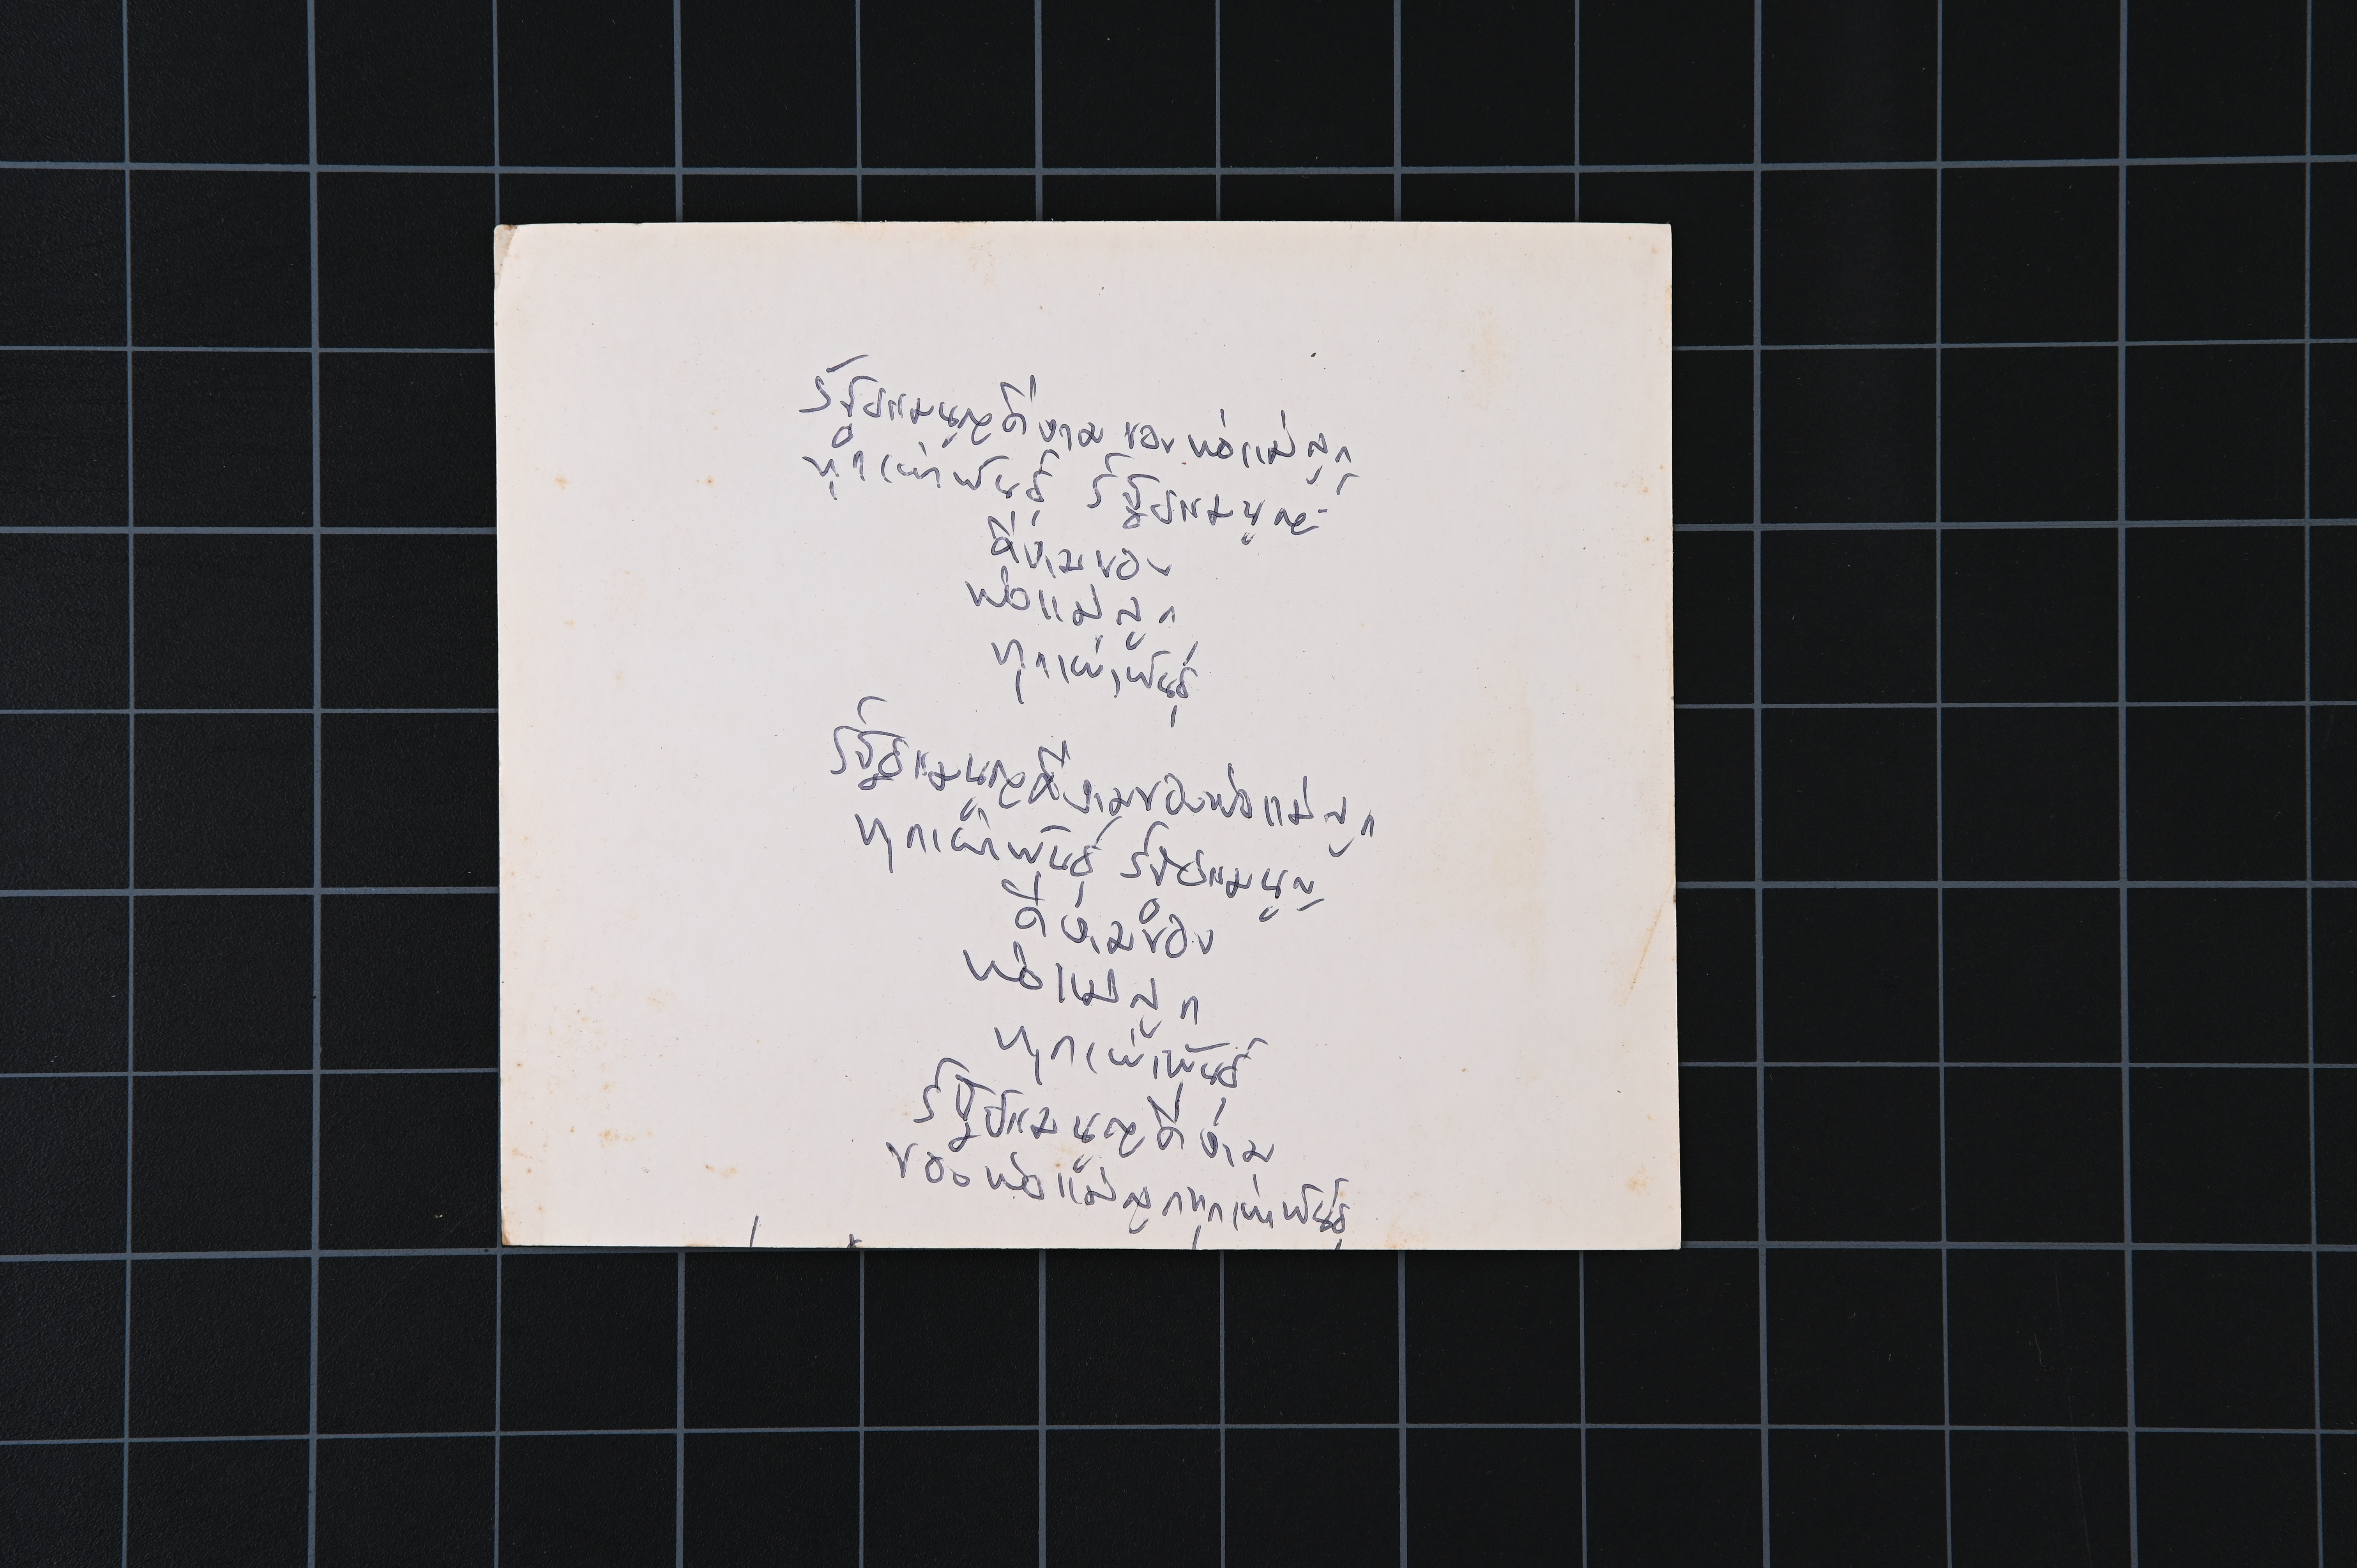 รัฐธรรมนูญดีงาม ของ พ่อแม่ลูก
ทุกเผ่าพันธุ์ รัฐธรรมนูญ
ดีงามของ
พ่อแม่ลูก
ทุกเผ่าพันธุ์
รัฐธรรมนูญดีงามของพ่อแม่ลูก
ทุกเผ่าพันธุ์ รัฐธรรมนูญ
ดีงามของ
พ่อแม่ลูก
ทุกเผ่าพันธุ์
รัฐธรรมนูญดีงาม
ของพ่อแม่ลูกทุกเผ่าพันธุ์